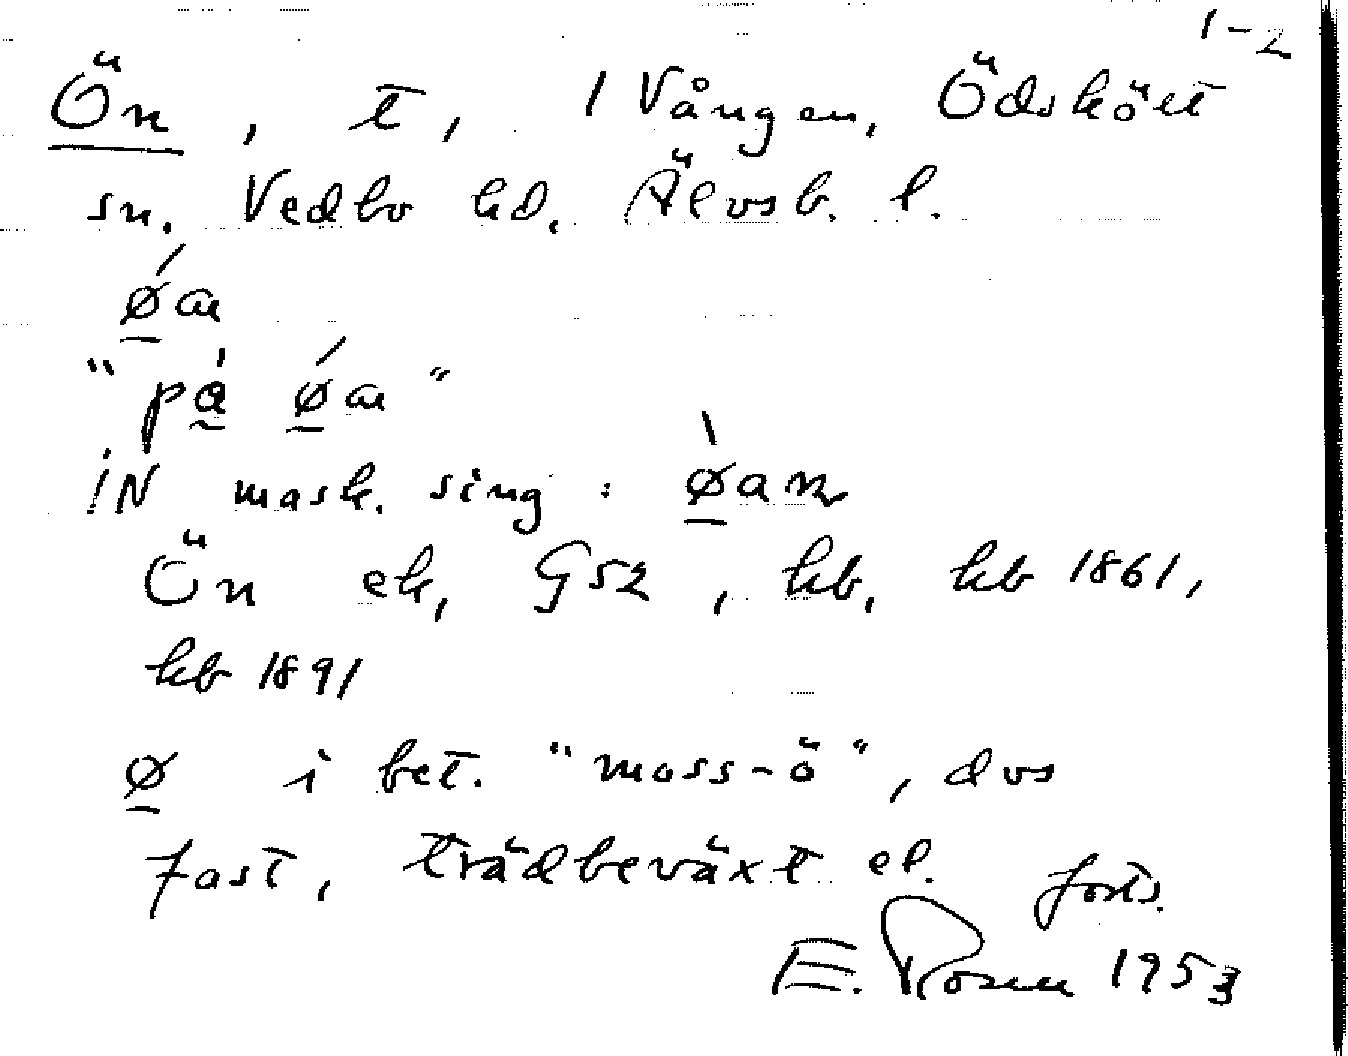 1-2
Ön, t, 1 Vången, Ödskölt
sn. Vedbo hd. Älvsb. l.
ǿ̲a
"på̲ ǿ̲a"
iN mask. sing: ø̲̀an
Ön ek, G52, kb, kb 1861,
kb 1891
ø̲ i bet. "moss-ö", dvs
fast, trädbeväxt el. forts.
E. Rosen 1953